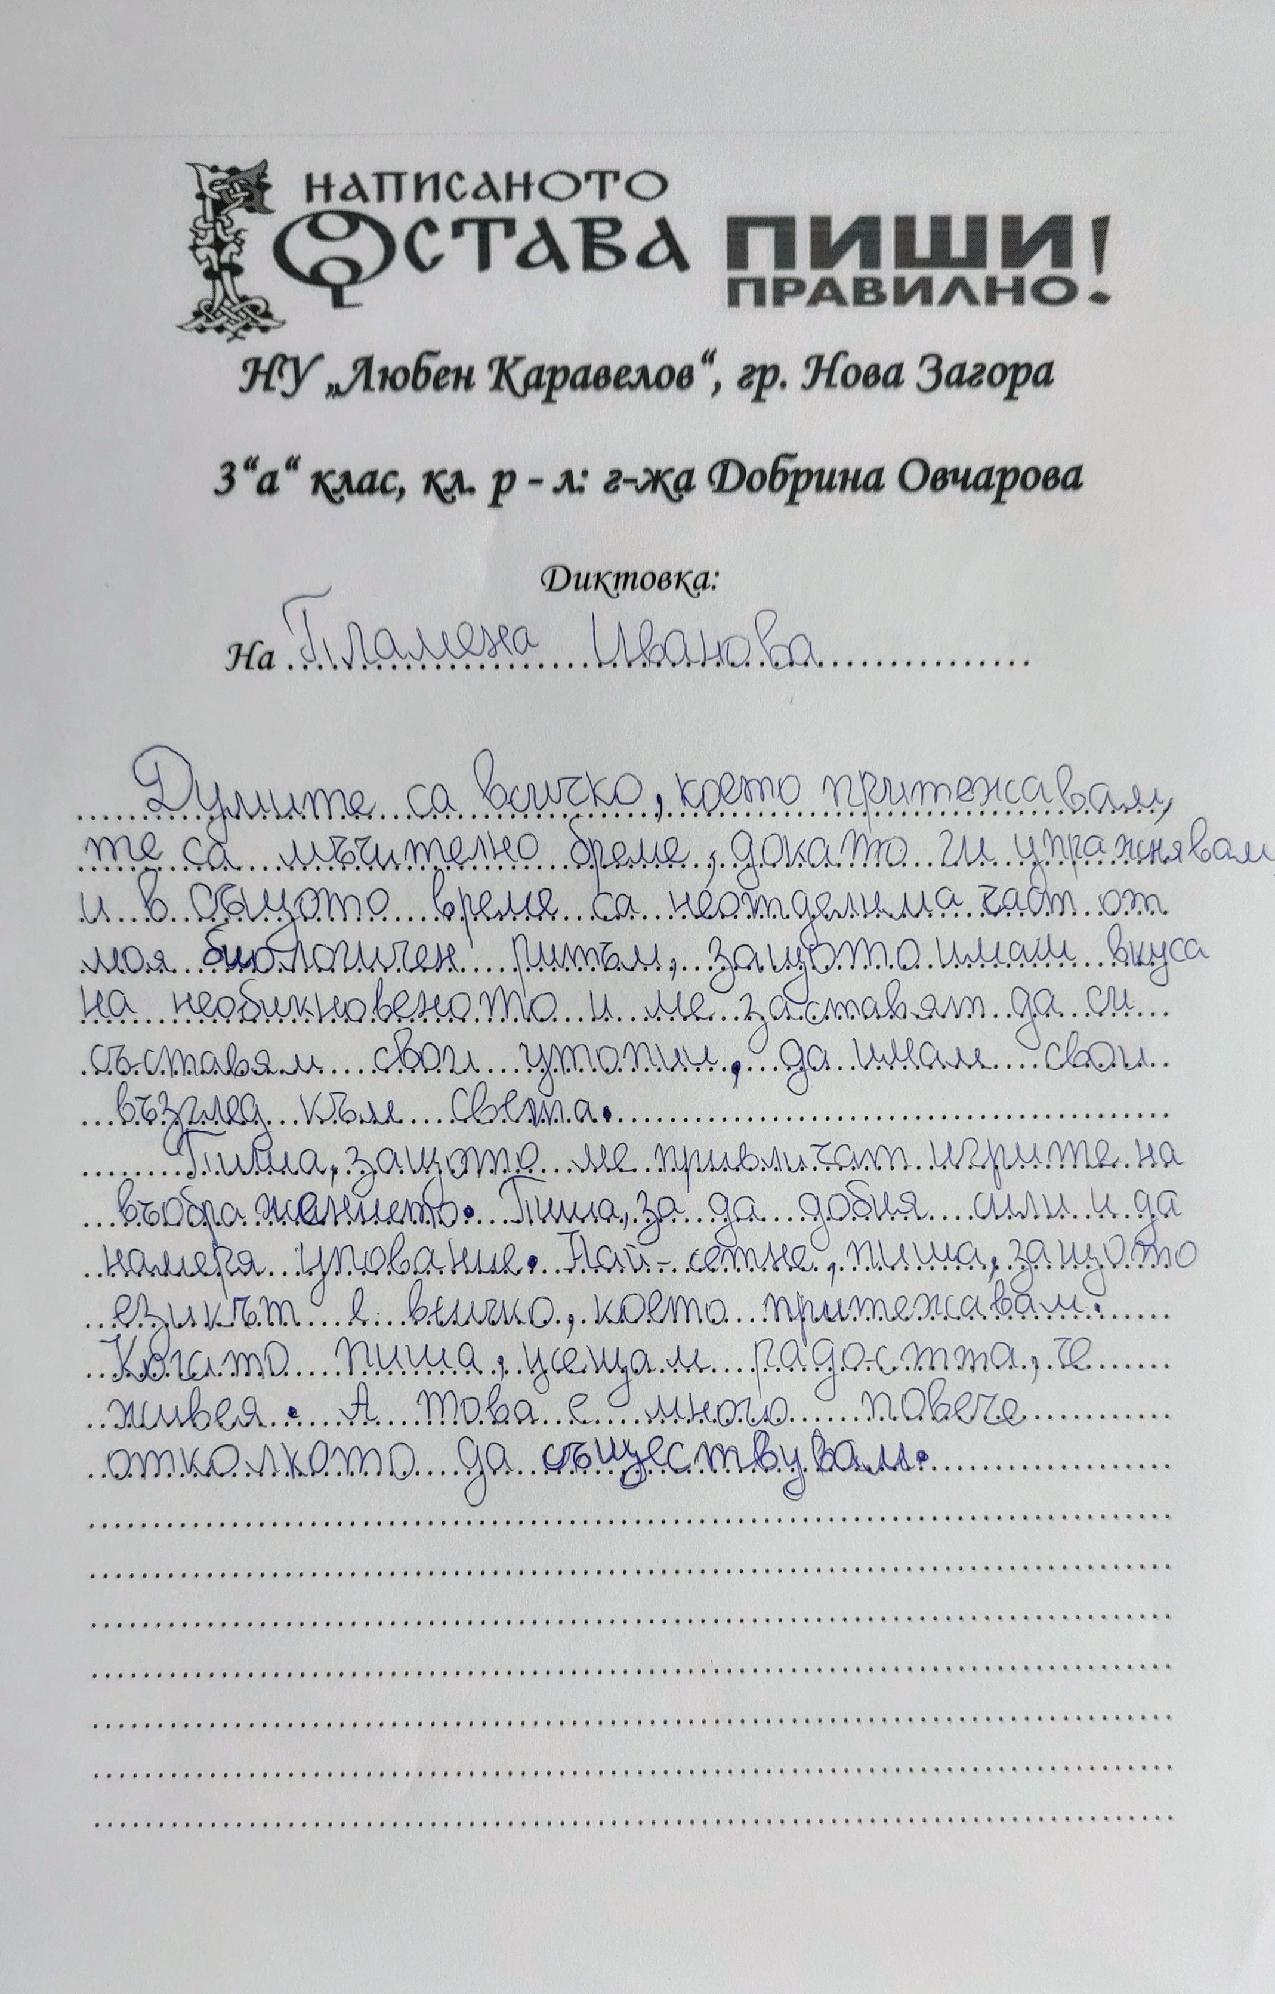 НАПИСАНОТО
ОСТАВА
ПИШИ
ПРАВИЛНО!
НУ „Любен Каравелов“, гр. Нова Загора
3“а“ клас, кл. р - л: г-жа Добрина Овчарова
Диктовка:
На Пламена Иванова
Думите са всичко, което притежавам,
те са мъчително бреме, докато ги упражнявам
и в същото време са неотделима част от
моя биологичен ритъм, защото имаш вкуса
на необикновеното и ме заставят да си
съставям свои утопии, да имам свои
възглед към света.
Пиша, защото ме привличат игрите на
въображението. Пиша, за да добия сили и да
намеря упование. Най-сетне, пиша, защото
езикът е всичко, което притежавам.
Когато пиша, усещам радостта, че
живея. А това е много повече
отколкото да съществувам.